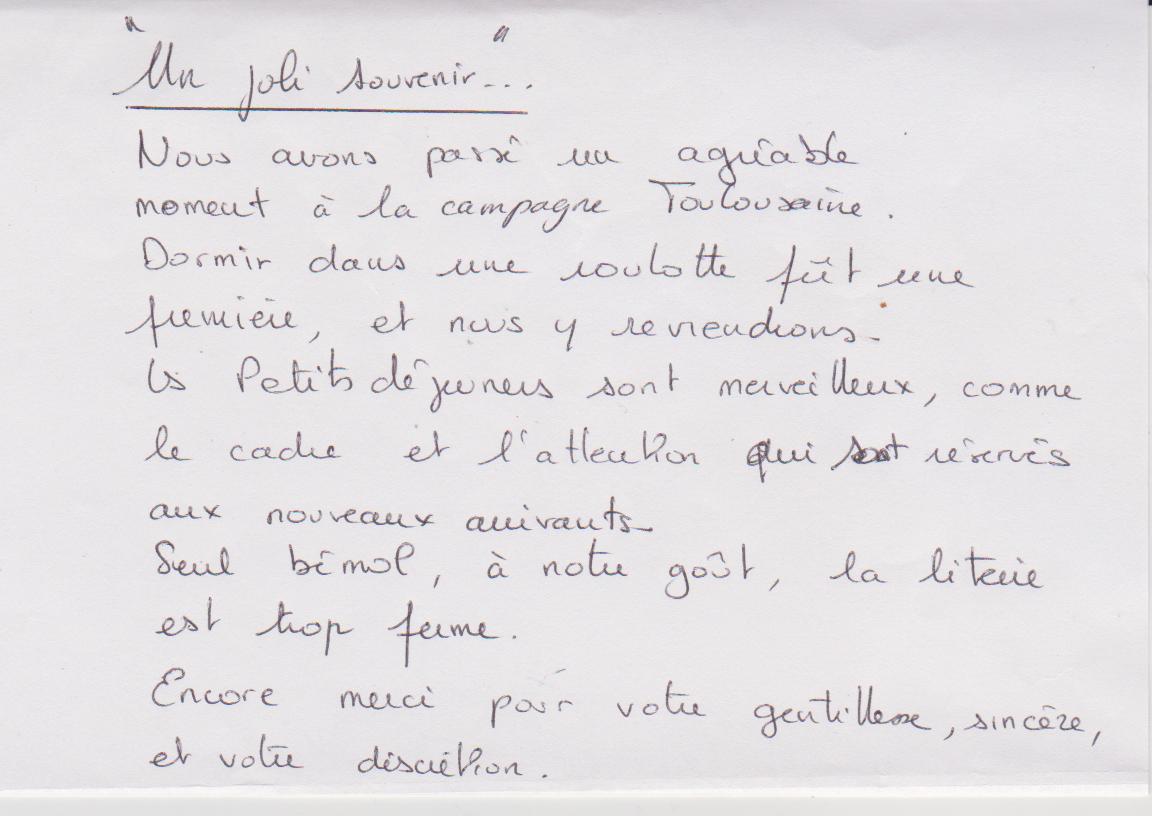 "Un joli souvenir..."
Nous avons passé un agréable
moment à la campagne Toulousaine.
Dormir dans une roulotte fût une
première, et nous y reviendrons.
Les Petits déjeuners sont merveilleux, comme
le cadre et l'attention qui sont réservés
aux nouveaux arrivants.
Seul bémol, à notre goût, la literie
est trop ferme.
Encore merci pour votre gentillesse, sincère,
et votre discrétion.